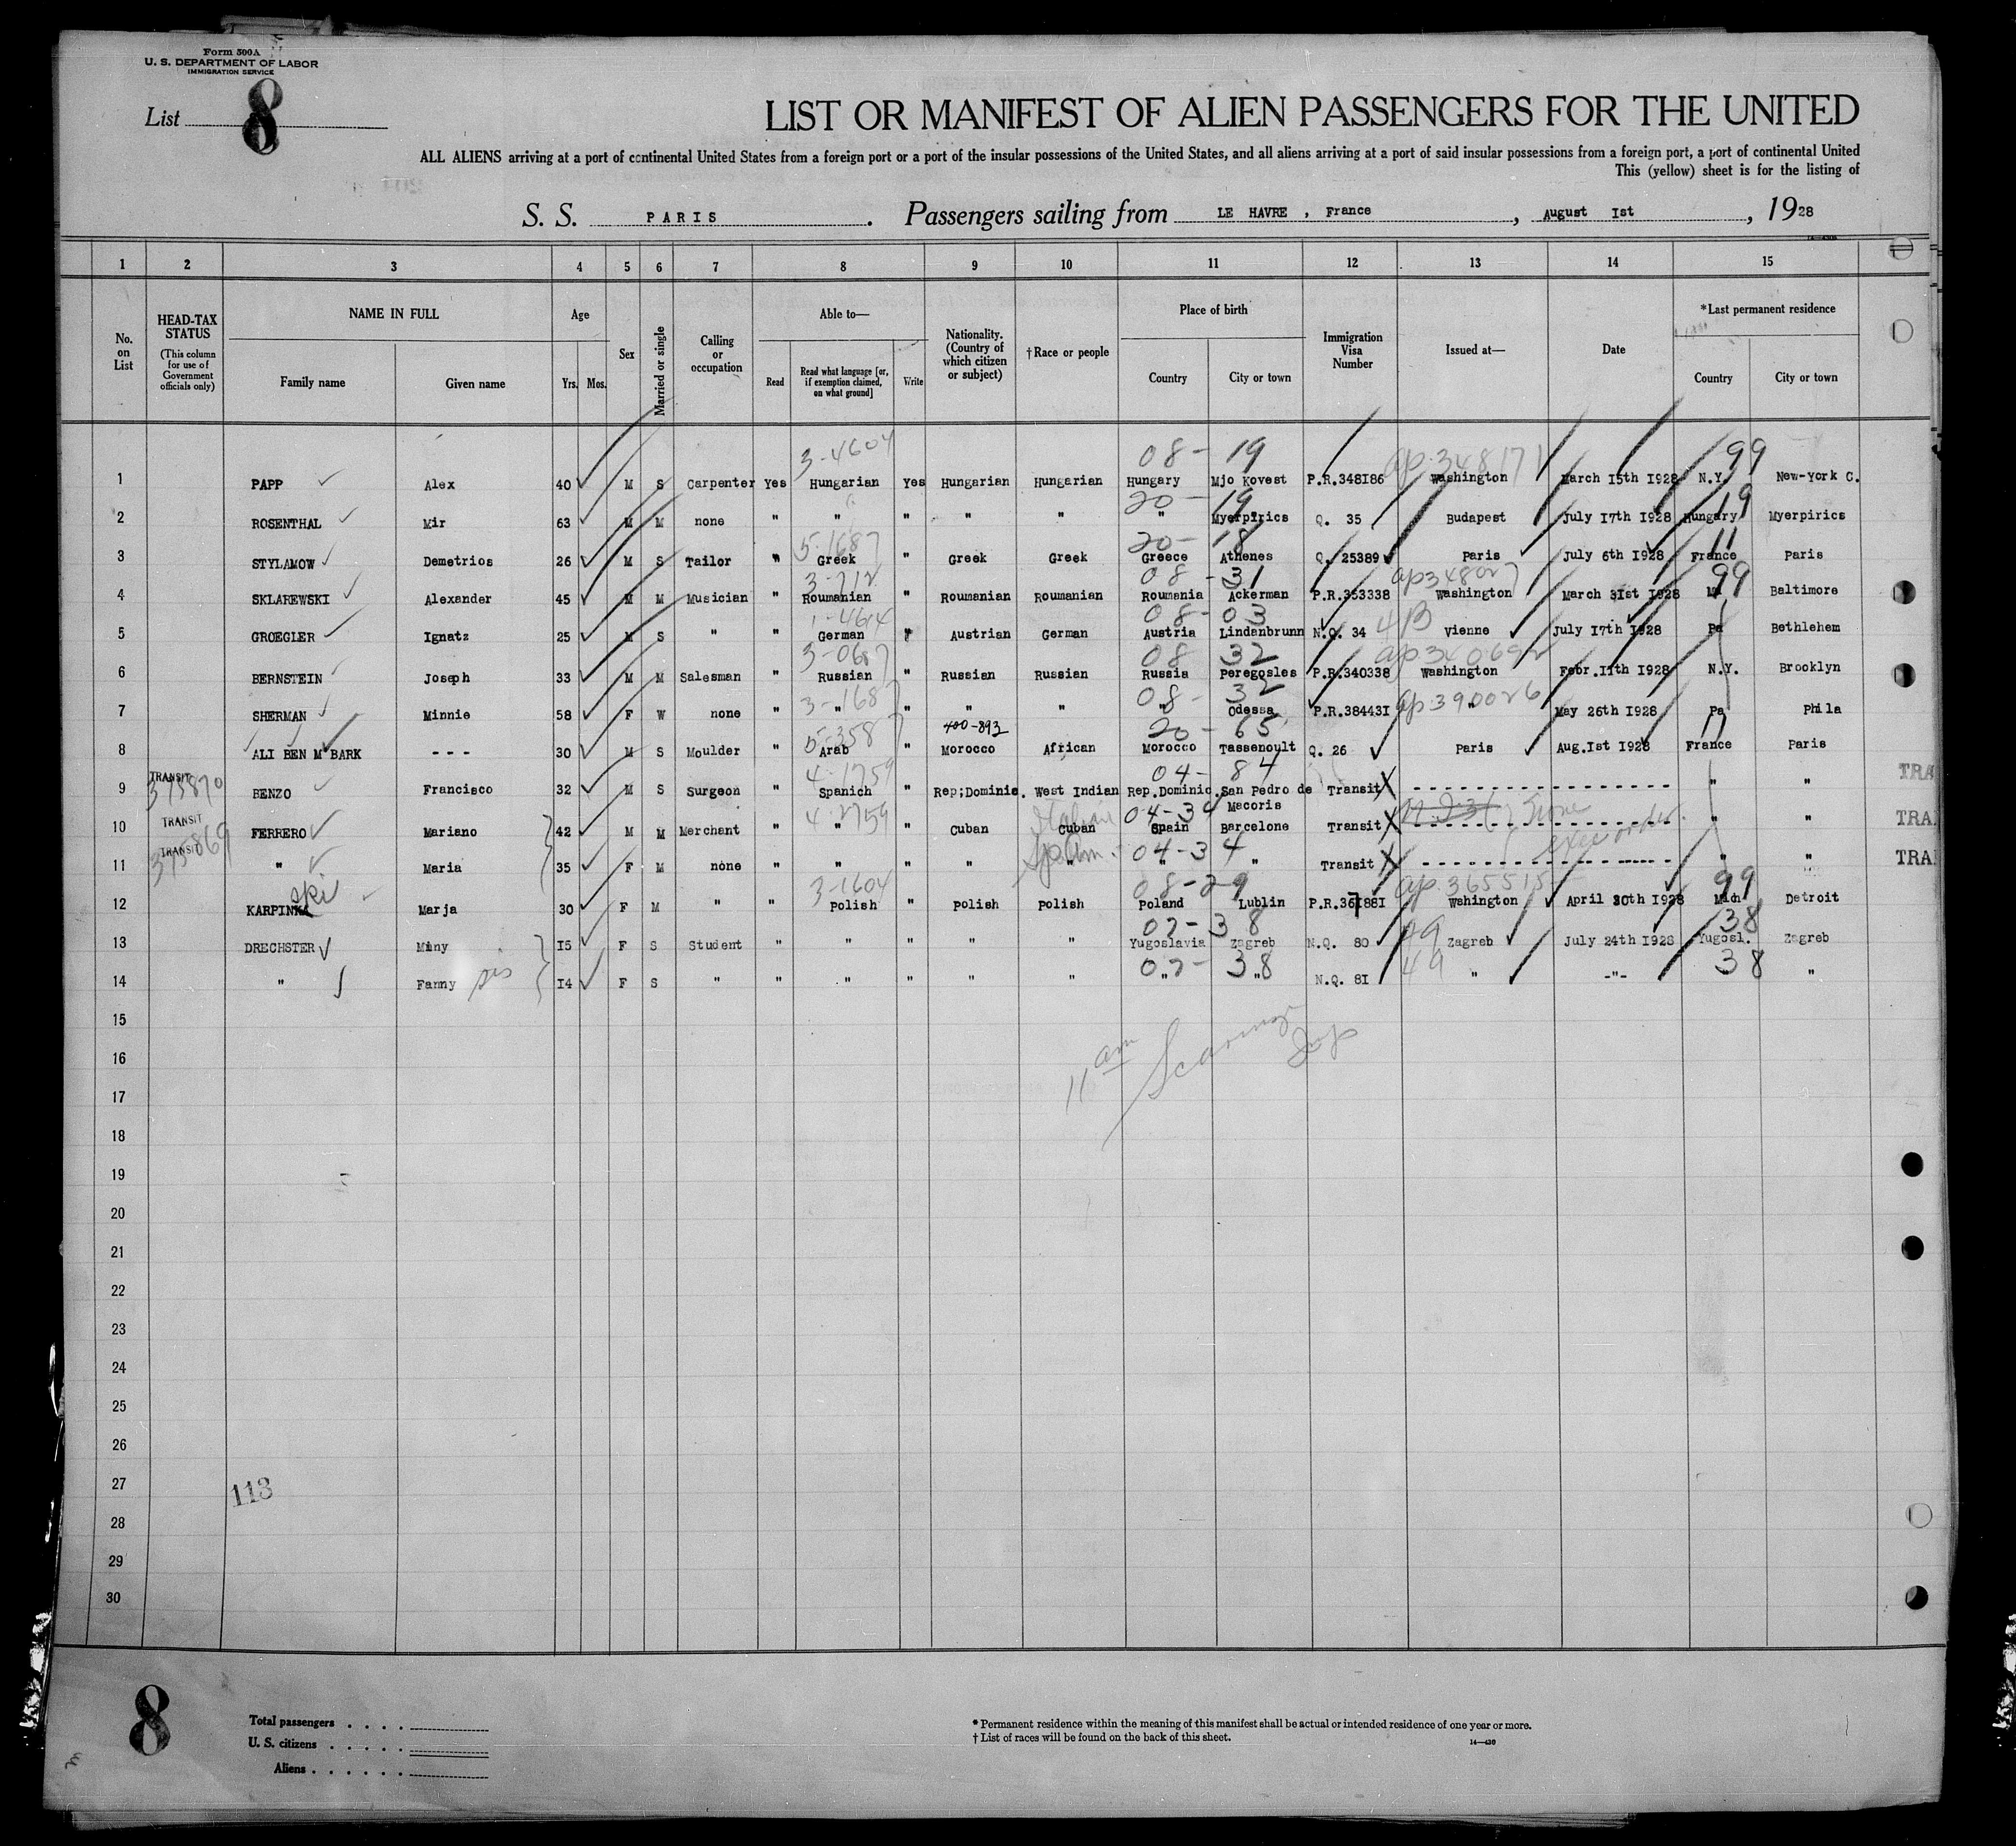 Form 500A
U. S. DEPARTMENT OF LABOR
IMMIGRATION SERVICE
List 8
LIST OR MANIFEST OF ALIEN PASSENGERS FOR THE UNITED
ALL ALIENS arriving at a port of continental United States from a foreign port or a port of the insular possessions of the United States, and all aliens arriving at a port of said insular possessions from a foreign port, a port of continental United
This (yellow) sheet is for the listing of
S. S. PARIS. Passengers sailing from LE HAVRE , France, August Ist, 1928
1 2 3 4 5 6 7 8 9 10 11 12 13 14 15
No. on List
HEAD-TAX STATUS
(This column for use of Government officials only)
NAME IN FULL
Family name
Given name
Age
Yrs. Mos.
Sex
Married or single
Calling or occupation
Able to—
Read
Read what language [or, if exemption claimed, on what ground]
Write
Nationality. (Country of which citizen or subject)
†Race or people
Place of birth
Country
City or town
Immigration Visa Number
Issued at—
Date
*Last permanent residence
Country
City or town
3-4604 08- 19 ap. 348171 99
1 PAPP Alex 40 M S Carpenter Yes Hungarian Yes Hungarian Hungarian Hungary Mjo Kovest P.R.348I86 Washington March I5th I928 N.Y. New-York C.
20- 19 19
2 ROSENTHAL Mir 63 M M none " " " " " " Myerpirics Q. 35 Budapest July I7th I928 Hungary Myerpirics
5-1687 20- 18 11
3 STYLAMOW Demetrios 26 M S Tailor " Greek " Greek Greek Greece Athenes Q. 25389 Paris July 6th I928 France Paris
3-712 08-31 ap348027 99
4 SKLAREWSKI Alexander 45 M M Musician " Roumanian " Roumanian Roumanian Roumania Ackerman P.R.353338 Washington March 3Ist I928 Md Baltimore
1-4614 08-03 4B
5 GROEGLER Ignatz 25 M S " " German " Austrian German Austria Lindenbrunn N.Q. 34 Vienne July I7th I928 Pa Bethlehem
3-0687 08 32 ap340692
6 BERNSTEIN Joseph 33 M M Salesman " Russian " Russian Russian Russia Peregosles P.R.340338 Washington Febr.IIth I928 N.Y. Brooklyn
3-1687 08- 32 ap.390026
7 SHERMAN Minnie 58 F W none " " " " " " Odessa P.R.38443I " May 26th I928 Pa Phila
5-358 400-893 20-65 11
8 ALI BEN M BARK - - - 30 M S Moulder " Arab " Morocco African Morocco Tassenoult Q. 26 Paris Aug.Ist I928 France Paris
TRANSIT 375870 4-1759 04- 84
9 BENZO Francisco 32 M S Surgeon " Spanich " Rep;Dominic. West Indian Rep.Dominic.San Pedro de Macoris Transit X " " TRA
TRANSIT 4-2759 Italian 04-34 None exec order
10 FERRERO Mariano 42 M M Merchant " " " Cuban Cuban Spain Barcelone Transit X " " TRA
TRANSIT 375869 Sp Am. 04-34
11 " Maria 35 F M none " " " " " " " Transit X " " TRA
ski 3-1604 08-29 ap.365515 99
12 KARPINKA Marja 30 F M " " Polish " Polish Polish Poland Lublin P.R.36I88I Wahington April 30th I928 Mich Detroit
07-38 49 38
13 DRECHSTER Miny I5 F S Student " " " " " Yugoslavia Zagreb N.Q. 80 Zagreb July 24th I928 Yugosl. Zagreb
07-38 49 38
14 " Fanny sis I4 F S " " " " " " " " N.Q. 8I " -"- " "
15
16 11 am
17
18
19
20
21
22
23
24
25
26
27 113
28
29
30
8
Total passengers . . . .
U. S. citizens . . . . .
Aliens . . . . . .
* Permanent residence within the meaning of this manifest shall be actual or intended residence of one year or more.
† List of races will be found on the back of this sheet.
14—430